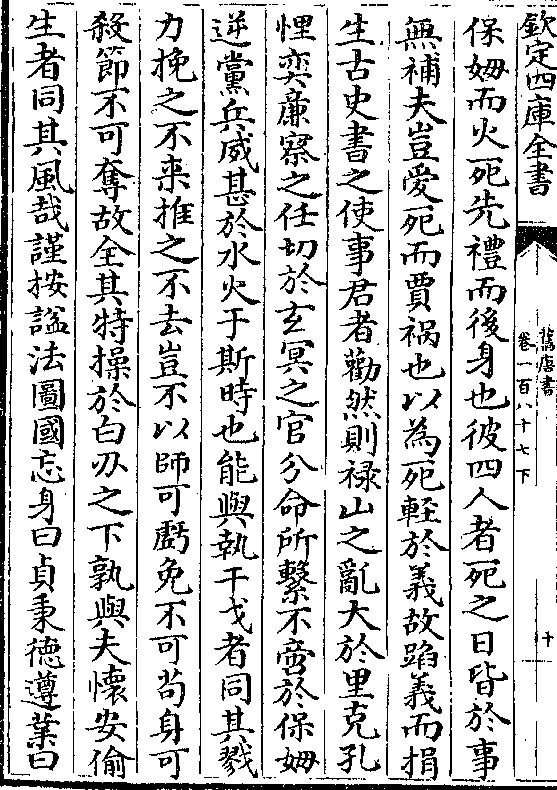 欽定四庫全書
舊唐書
卷一百八十七下
十
保姆而火死先禮而後身也彼四人者死之日皆於事
無補夫豈愛死而賈禍也以為死輕於義故蹈義而捐
生古史書之使事君者勸然則祿山之亂大於里克孔
悝奕廉察之任切於玄冥之官分命所繫不啻於保姆
逆黨兵威甚於水火于斯時也能與執干戈者同其戮
力挽之不来推之不去豈不以師可虧免不可苟身可
殺節不可奪故全其特操於白刃之下孰與夫懷安偷
生者同其風哉謹按諡法圖國忘身曰貞秉德遵業曰